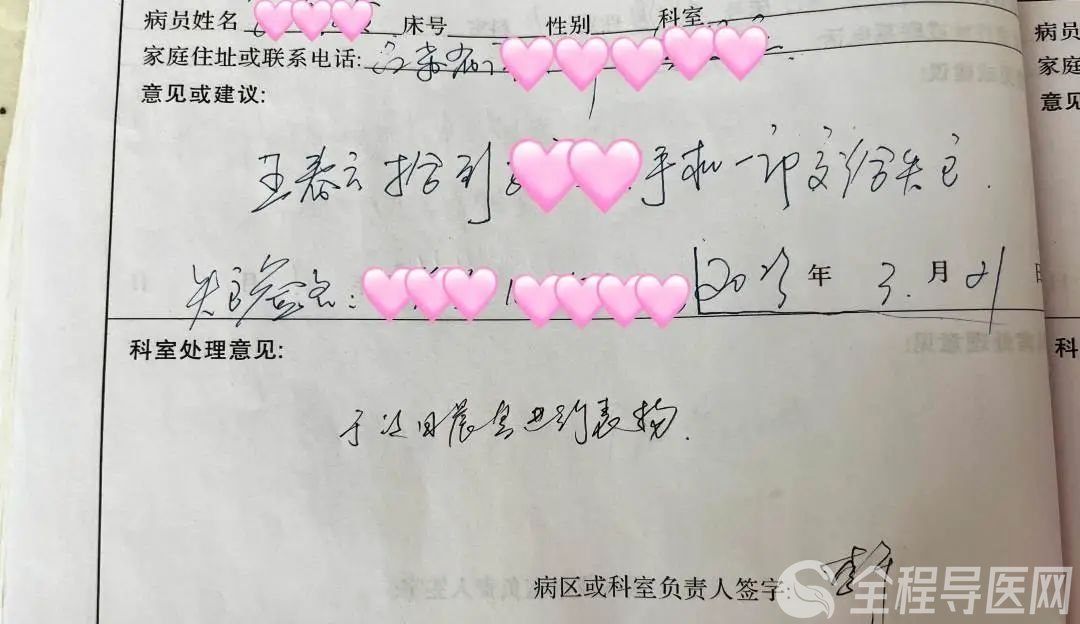 病员姓名 床号 性别 科室 病员
家庭住址或联系电话: 家庭
意见或建议: 意见
王春云拾到 手机一部交给失主.
失主签名: 2023 年 3. 月 21 日
科室处理意见: 科
于次日晨会进行表扬.
病区或科室负责人签字:
全程导医网